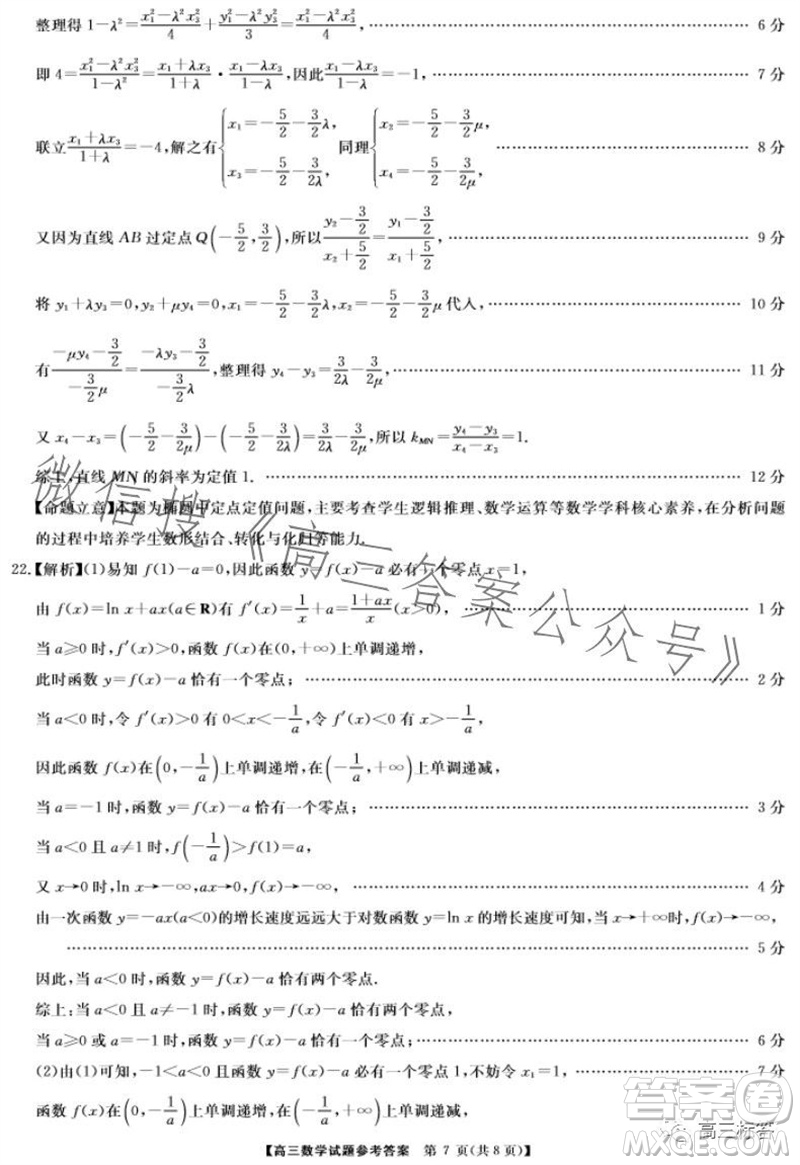 整理得 1－λ²＝(x₁²－λ²x₃²)/4＋(y₁²－λ²y₃²)/3＝(x₁²－λ²x₃²)/4，…… 6 分
即 4＝(x₁²－λ²x₃²)/(1－λ²)＝(x₁＋λx₃)/(1＋λ)·(x₁－λx₃)/(1－λ)，因此(x₁－λx₃)/(1－λ)＝－1，…… 7 分
联立(x₁＋λx₃)/(1＋λ)＝－4，解之有{x₁＝－5/2－(3/2)λ，x₃＝－5/2－3/(2λ)，同理{x₂＝－5/2－(3/2)μ，x₄＝－5/2－3/(2μ)，…… 8 分
又因为直线 AB 过定点 Q(－5/2，3/2)，所以(y₂－3/2)/(x₂＋5/2)＝(y₁－3/2)/(x₁＋5/2)，…… 9 分
将 y₁＋λy₃＝0，y₂＋μy₄＝0，x₁＝－5/2－(3/2)λ，x₂＝－5/2－(3/2)μ 代入，…… 10 分
有(－μy₄－3/2)/(－(3/2)μ)＝(－λy₃－3/2)/(－(3/2)λ)，整理得 y₄－y₃＝3/(2λ)－3/(2μ)，…… 11 分
又 x₄－x₃＝(－5/2－3/(2μ))－(－5/2－3/(2λ))＝3/(2λ)－3/(2μ)，所以 k_MN＝(y₄－y₃)/(x₄－x₃)＝1.
综上，直线 MN 的斜率为定值 1. …… 12 分
【命题立意】本题为椭圆中定点定值问题，主要考查学生逻辑推理、数学运算等数学学科核心素养，在分析问题
的过程中培养学生数形结合、转化与化归等能力.
22.【解析】(1)易知 f(1)－a＝0，因此函数 y＝f(x)－a 必有一个零点 x＝1，
由 f(x)＝ln x＋ax(a∈R)有 f′(x)＝1/x＋a＝(1＋ax)/x(x＞0)，…… 1 分
当 a≥0 时，f′(x)＞0，函数 f(x)在(0，＋∞)上单调递增，
此时函数 y＝f(x)－a 恰有一个零点；…… 2 分
当 a＜0 时，令 f′(x)＞0 有 0＜x＜－1/a，令 f′(x)＜0 有 x＞－1/a，
因此函数 f(x)在(0，－1/a)上单调递增，在(－1/a，＋∞)上单调递减，
当 a＝－1 时，函数 y＝f(x)－a 恰有一个零点；…… 3 分
当 a＜0 且 a≠－1 时，f(－1/a)＞f(1)＝a，
又 x→0 时，ln x→－∞，ax→0，f(x)→－∞，…… 4 分
由一次函数 y＝－ax(a＜0)的增长速度远远大于对数函数 y＝ln x 的增长速度可知，当 x→＋∞时，f(x)→－∞，
…… 5 分
因此，当 a＜0 时，函数 y＝f(x)－a 恰有两个零点.
综上：当 a＜0 且 a≠－1 时，函数 y＝f(x)－a 恰有两个零点；
当 a≥0 或 a＝－1 时，函数 y＝f(x)－a 恰有一个零点；…… 6 分
(2)由(1)可知，－1＜a＜0 函数 y＝f(x)－a 必有一个零点 1，不妨令 x₁＝1，…… 7 分
函数 f(x)在(0，－1/a)上单调递增，在(－1/a，＋∞)上单调递减，
【高三数学试题参考答案 第 7 页(共 8 页)】
微信搜《高三答案公众号》
高三标答
答案圈
MXQE.COM